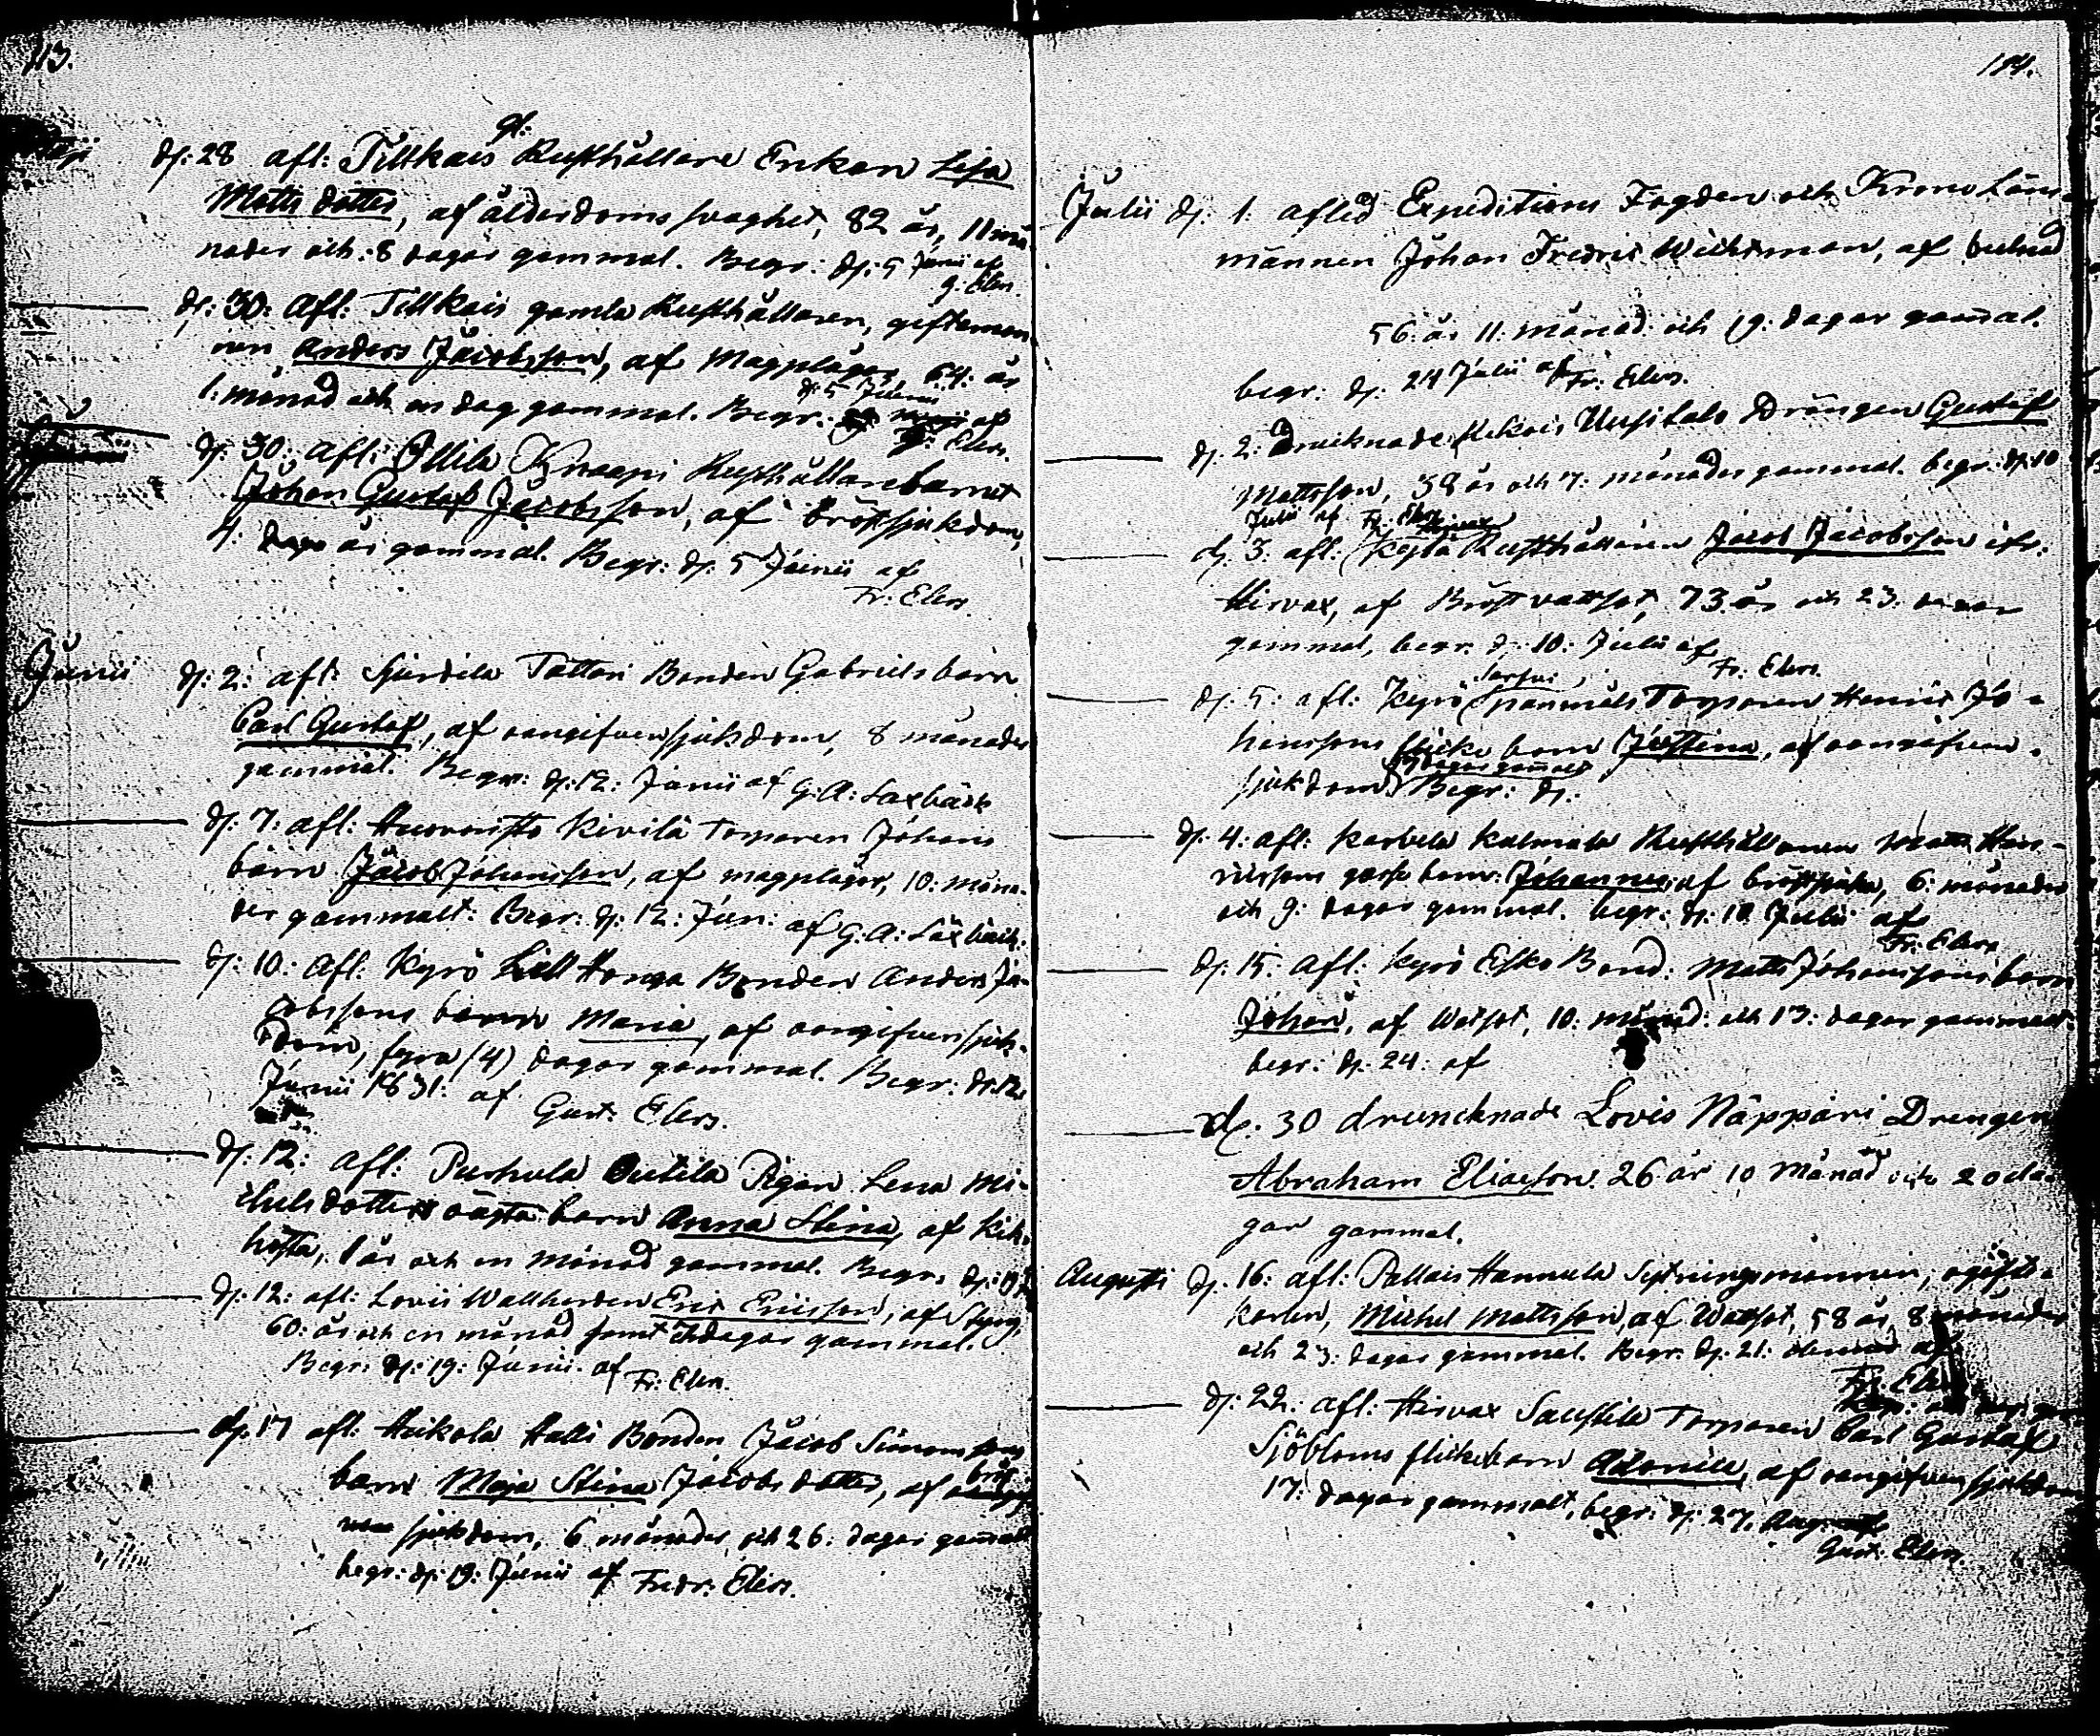 113.
gl:
d: 28 afl: Tillkais Rusthållare Enkan Lisa
Matts dotter, af ålderdoms svaghet, 82 år, 11 må-
nader och 8 dagar gammal. Begr: d: 5 Junii af
G: Elers.
d: 30: Afl: Tillkais gamla Rusthållaren, giftaman
nen Anders Jacobsson, af Magplågor, 64: år
1: månad och en dag gammal. Begr. d: 5 Junii af
G: Elers.
d: 30: Afl: Ollila Knaapi Rusthållarebarnet
Johan Gustaf Jacobsson, af Bröstsjukdom,
4: år gammal. Begr: d: 5 Junii af
Fr: Elers.
Junii d: 2: afl: Sjurdila Tattari Bonden Gabriels barn
Carl Gustaf, af oangifven sjukdom, 8 månader
gammal. Begr: d: 12: Junii af G: A: Laxbäck
d: 7: afl: Kivilä Torparen Johans
barn Jacob Johansson, af magplågor, 10: måna-
der gammalt. Begr: d: 12: Jun: af G: A: Laxbäck.
d: 10: Afl: Kyrö Lill Honga Bonden Anders Ja-
cobssons barn Maria, af oangifven sjuk-
dom, fyra (4) dagar gammal. Begr: d: 12.
Junii 1831: af Gust: Elers.
d: 12: afl: Purhula Outila Pigan Lena Mi-
chelsdotters oägta barn Anna Stina, af Kik-
hosta, 1 år och en månad gammal. Begr. d: 19
d: 12: afl: Lovis Wallherden Eric Ericsson, af Styng,
60: år och en månad samt dagar gammal.
Begr: d: 19: Junii. af Fr: Elers.
d. 17 afl: Heikola Halli Bonden Jacob Simonssons
barn Maja Stina Jacobs dotter, af bröst
sjukdom, 6 månader och 26: dagar gammal
begr: d: 19: Junii af Fredr: Elers.
114.
Julii d: 1: afled Expeditions Fogden och Krono Läns-
männen Johan Fredric Wichtman, af
56: år 11: månad: och 19: dagar gamal.
begr: d: 24 Julii af Fr: Elers.
d: 2: Druncknade Uusitalo Drängen Gustaf
Mattsson, 38 år och 7: månader gammal. begr: d: 10
Julii af Fr: Elers
d: 3: afl: Rusthållaren Jacob Jacobsson ifr:
Hirvax, af Bröst vattsot, 73 år och 23: dagar
gammal, begr. d: 10: Julii af
Fr: Elers.
d: 5: afl: Kyrö Torparen Henric Jo-
hanssons flicke barn Justina, af oangifven
dagar gamalt
sjukdom Begr: d:
d: 4: afl: Karvela Kalmala Rusthållaren Hen-
ricssons gosse barn: Johannes af bröstsjuka, 6: månader
och 9: dagar gammal. begr: d: 10 Julii af
Fr: Elers
d: 15: Afl: Kyrö Esko Bond: Matts Johanssons barn
Johan, af Watsot, 10: månad: och 13: dagar gammal
begr: d: 24: af
d: 30 druncknade Lovis Näppäri Drengen
Abraham Eliaeson. 26 år 10 Månad och 20 da-
gar gammal.
Augusti d: 16: afl: Pallais Hannula Sytningsmannen, ogifte
karlen, Michel Mattsson, af Wattsot, 58 år, 8 månader
och 23: dagar gammal. Begr: d: 21: af
Fr: Elers
d: 22: afl: Hirvax Saustila Torparen Carl Gustaf
Sjöbloms flickebarn Adonice, af oangifven sjukdom
17: dagar gammalt, begr: d: 27. Aug: af
Gust: Elers.